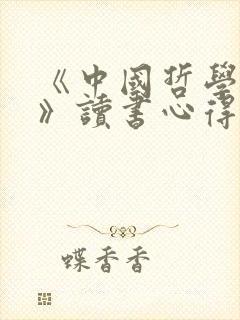 《中國哲學
》讀書心得
蝶香香